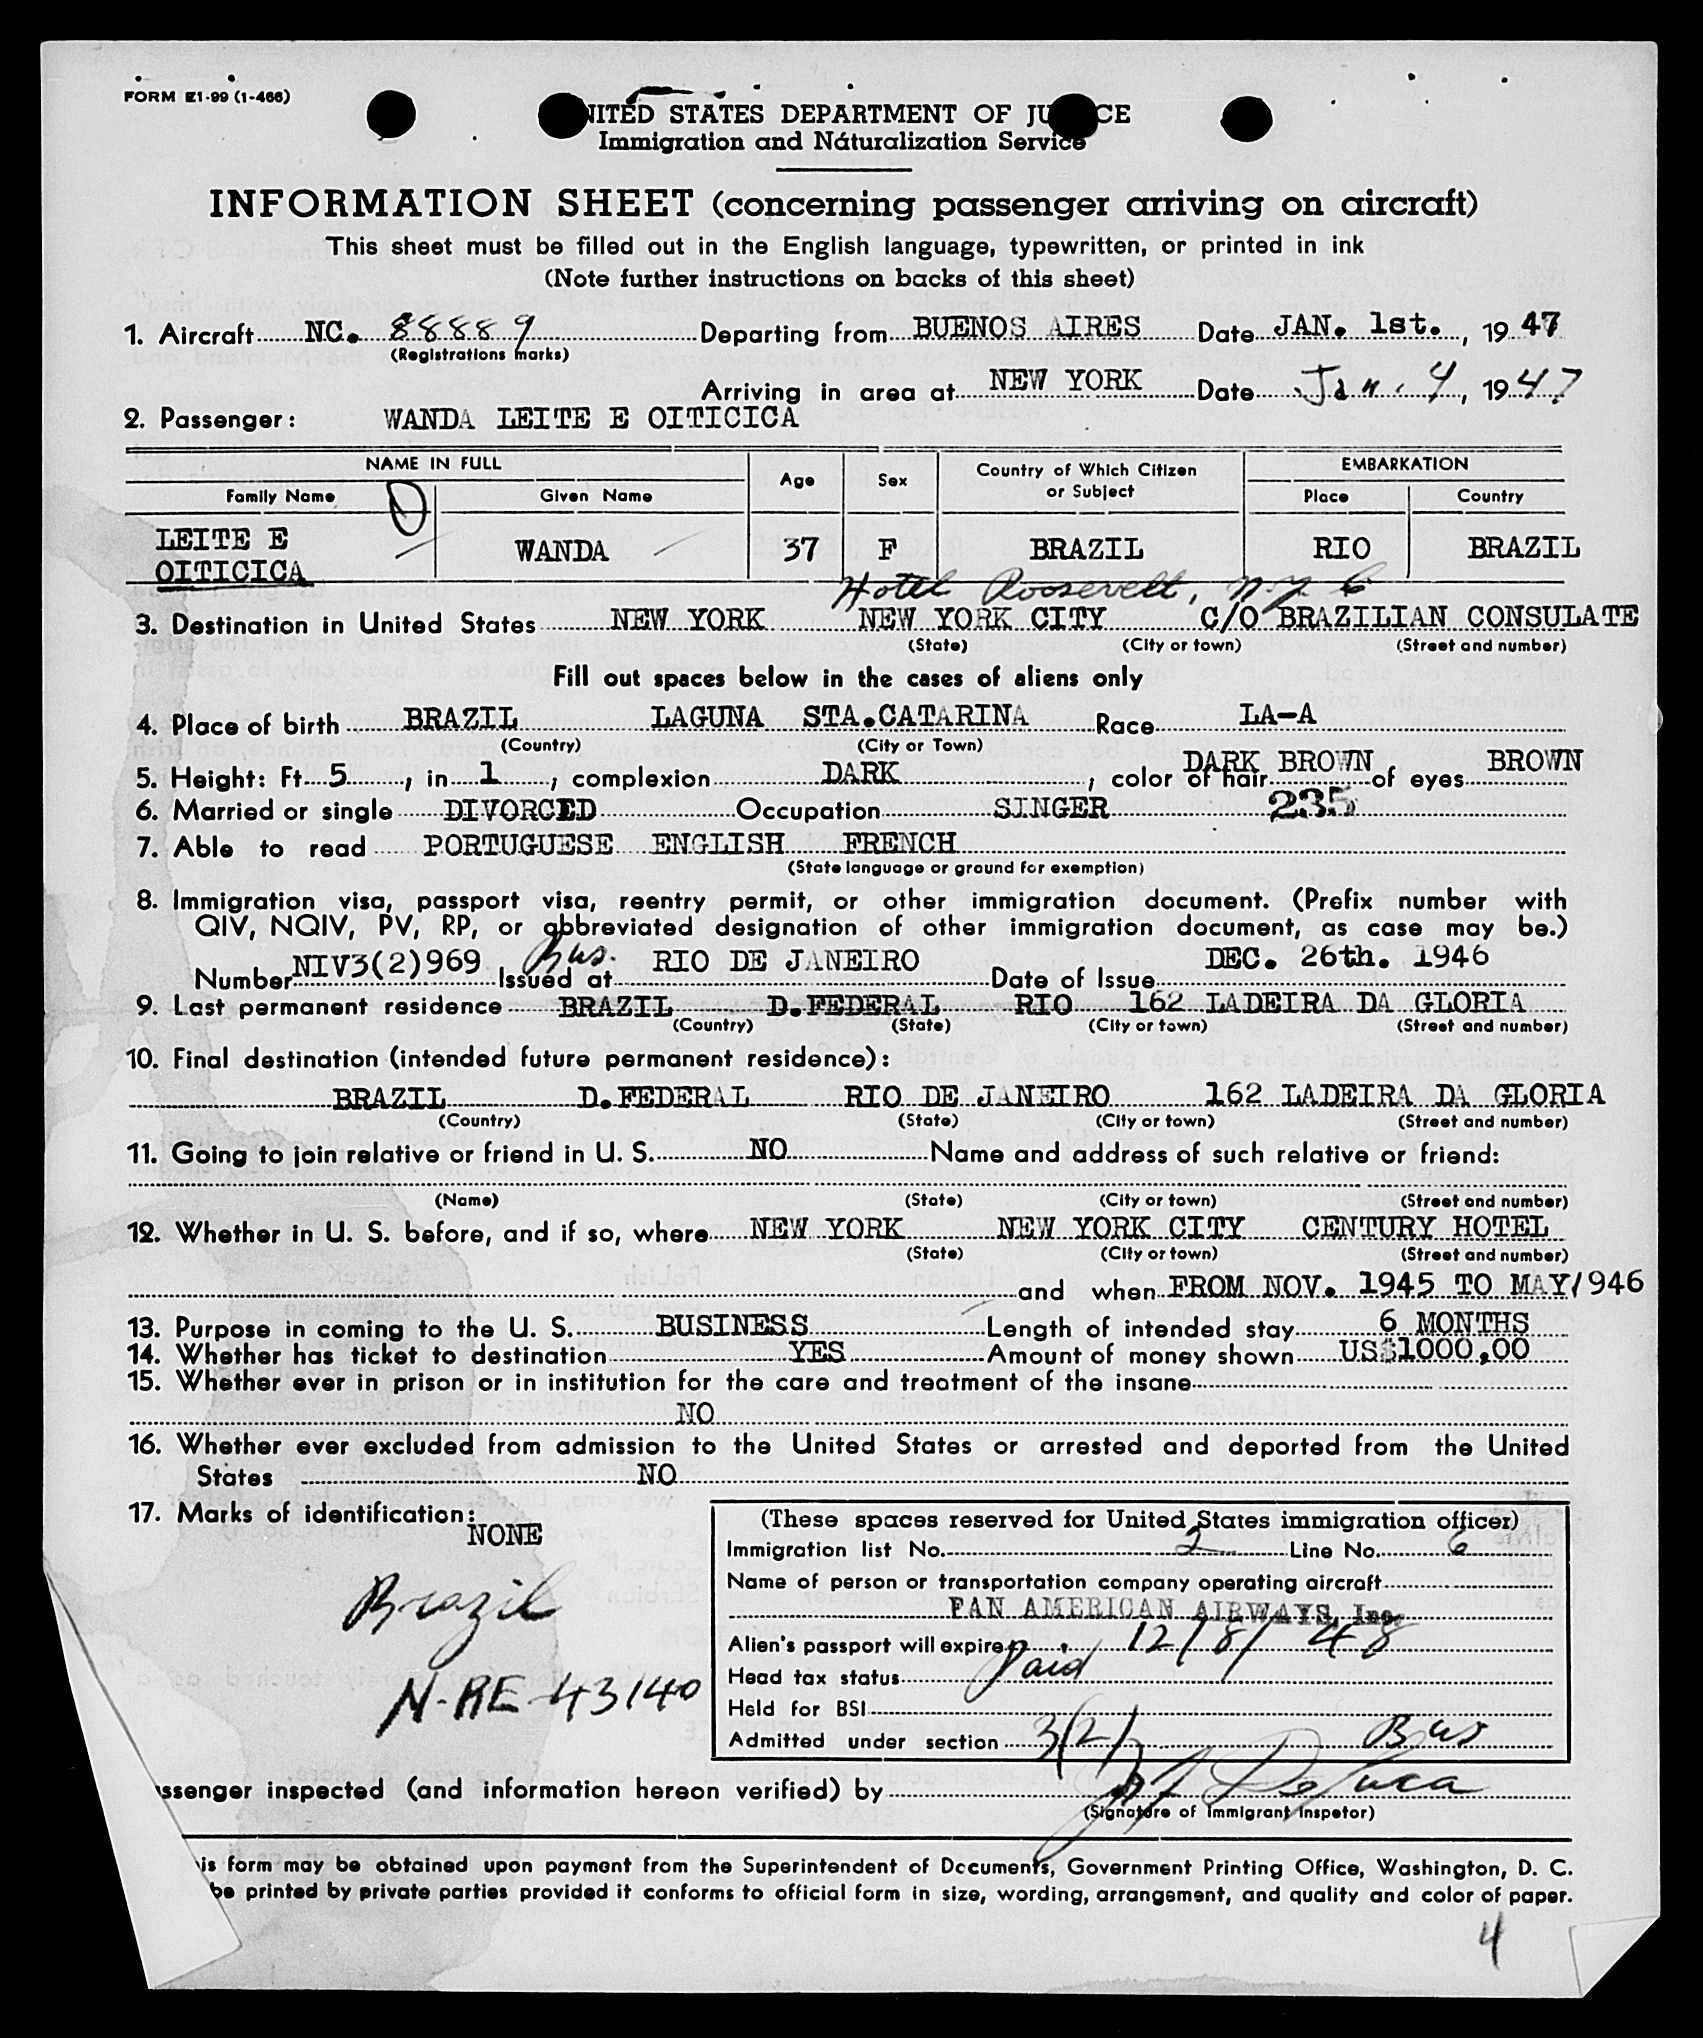 FORM I-99 (1-466)
UNITED STATES DEPARTMENT OF JUSTICE
Immigration and Naturalization Service
INFORMATION SHEET (concerning passenger arriving on aircraft)
This sheet must be filled out in the English language, typewritten, or printed in ink
(Note further instructions on backs of this sheet)
1. Aircraft NC. 88889 Departing from BUENOS AIRES Date JAN. 1st., 1947
(Registrations marks)
Arriving in area at NEW YORK Date Jan. 4, 1947
2. Passenger: WANDA LEITE E OITICICA
NAME IN FULL Age Sex Country of Which Citizen or Subject EMBARKATION
Family Name Given Name Place Country
LEITE E OITICICA WANDA 37 F BRAZIL RIO BRAZIL
Hotel Roosevelt, N.Y.C
3. Destination in United States NEW YORK NEW YORK CITY C/O BRAZILIAN CONSULATE
(State) (City or town) (Street and number)
Fill out spaces below in the cases of aliens only
4. Place of birth BRAZIL LAGUNA STA.CATARINA Race LA-A
(Country) (City or Town)
5. Height: Ft. 5, in. 1; complexion DARK; color of hair DARK BROWN of eyes BROWN
6. Married or single DIVORCED Occupation SINGER 235
7. Able to read PORTUGUESE ENGLISH FRENCH
(State language or ground for exemption)
8. Immigration visa, passport visa, reentry permit, or other immigration document. (Prefix number with
QIV, NQIV, PV, RP, or abbreviated designation of other immigration document, as case may be.)
Number NIV3(2)969 Bus. Issued at RIO DE JANEIRO Date of Issue DEC. 26th. 1946
9. Last permanent residence BRAZIL D.FEDERAL RIO 162 LADEIRA DA GLORIA
(Country) (State) (City or town) (Street and number)
10. Final destination (intended future permanent residence):
BRAZIL D.FEDERAL RIO DE JANEIRO 162 LADEIRA DA GLORIA
(Country) (State) (City or town) (Street and number)
11. Going to join relative or friend in U. S. NO Name and address of such relative or friend:
(Name) (State) (City or town) (Street and number)
12. Whether in U. S. before, and if so, where NEW YORK NEW YORK CITY CENTURY HOTEL
(State) (City or town) (Street and number)
and when FROM NOV. 1945 TO MAY/946
13. Purpose in coming to the U. S. BUSINESS Length of intended stay 6 MONTHS
14. Whether has ticket to destination YES Amount of money shown US$1000,00
15. Whether ever in prison or in institution for the care and treatment of the insane
NO
16. Whether ever excluded from admission to the United States or arrested and deported from the United
States NO
17. Marks of identification:
NONE
Brazil
N-RE 43140
(These spaces reserved for United States immigration officer)
Immigration list No. 2 Line No. 6
Name of person or transportation company operating aircraft
PAN AMERICAN AIRWAYS, Inc.
Alien's passport will expire 12/8/48
Head tax status Paid
Held for BSI
Admitted under section 3(2) Bus
ssenger inspected (and information hereon verified) by
(Signature of Immigrant Inspetor)
is form may be obtained upon payment from the Superintendent of Documents, Government Printing Office, Washington, D. C.
be printed by private parties provided it conforms to official form in size, wording, arrangement, and quality and color of paper.
4